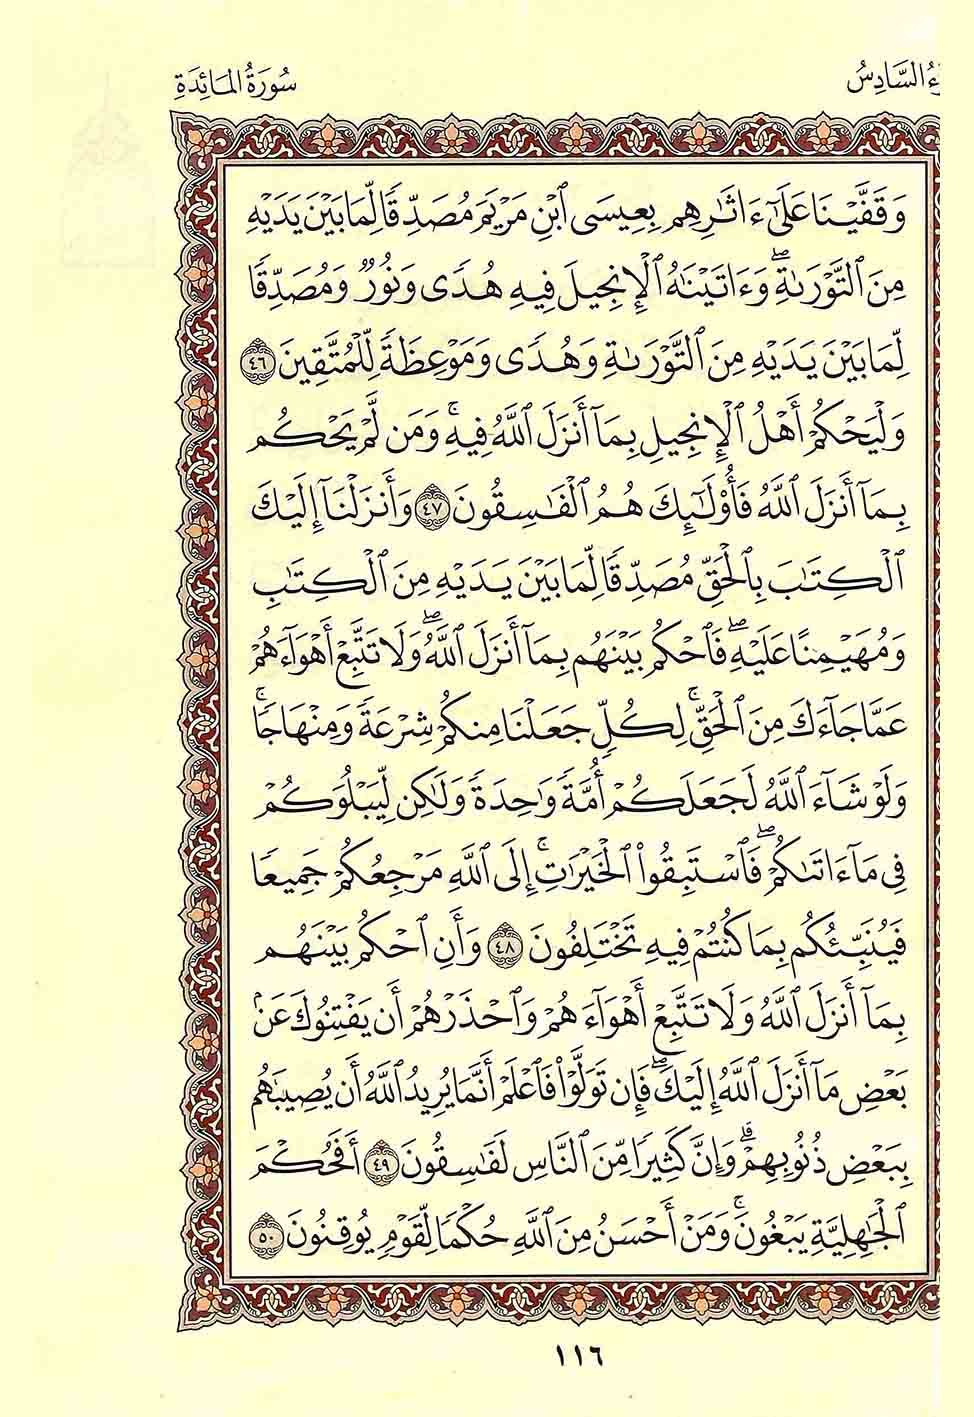 سُورَةُ المَائِدَةِ
السَّادِسُ
وَقَفَّيْنَا عَلَىٰٓ ءَاثَٰرِهِم بِعِيسَى ٱبْنِ مَرْيَمَ مُصَدِّقًا لِّمَا بَيْنَ يَدَيْهِ
مِنَ ٱلتَّوْرَىٰةِۖ وَءَاتَيْنَٰهُ ٱلْإِنجِيلَ فِيهِ هُدًى وَنُورٌ وَمُصَدِّقًا
لِّمَا بَيْنَ يَدَيْهِ مِنَ ٱلتَّوْرَىٰةِ وَهُدًى وَمَوْعِظَةً لِّلْمُتَّقِينَ ٤٦
وَلْيَحْكُمْ أَهْلُ ٱلْإِنجِيلِ بِمَآ أَنزَلَ ٱللَّهُ فِيهِۚ وَمَن لَّمْ يَحْكُم
بِمَآ أَنزَلَ ٱللَّهُ فَأُو۟لَٰٓئِكَ هُمُ ٱلْفَٰسِقُونَ ٤٧ وَأَنزَلْنَآ إِلَيْكَ
ٱلْكِتَٰبَ بِٱلْحَقِّ مُصَدِّقًا لِّمَا بَيْنَ يَدَيْهِ مِنَ ٱلْكِتَٰبِ
وَمُهَيْمِنًا عَلَيْهِۖ فَٱحْكُم بَيْنَهُم بِمَآ أَنزَلَ ٱللَّهُۖ وَلَا تَتَّبِعْ أَهْوَآءَهُمْ
عَمَّا جَآءَكَ مِنَ ٱلْحَقِّۚ لِكُلٍّ جَعَلْنَا مِنكُمْ شِرْعَةً وَمِنْهَاجًاۚ
وَلَوْ شَآءَ ٱللَّهُ لَجَعَلَكُمْ أُمَّةً وَٰحِدَةً وَلَٰكِن لِّيَبْلُوَكُمْ
فِى مَآ ءَاتَىٰكُمْۖ فَٱسْتَبِقُوا۟ ٱلْخَيْرَٰتِۚ إِلَى ٱللَّهِ مَرْجِعُكُمْ جَمِيعًا
فَيُنَبِّئُكُم بِمَا كُنتُمْ فِيهِ تَخْتَلِفُونَ ٤٨ وَأَنِ ٱحْكُم بَيْنَهُم
بِمَآ أَنزَلَ ٱللَّهُ وَلَا تَتَّبِعْ أَهْوَآءَهُمْ وَٱحْذَرْهُمْ أَن يَفْتِنُوكَ عَنۢ
بَعْضِ مَآ أَنزَلَ ٱللَّهُ إِلَيْكَۖ فَإِن تَوَلَّوْا۟ فَٱعْلَمْ أَنَّمَا يُرِيدُ ٱللَّهُ أَن يُصِيبَهُم
بِبَعْضِ ذُنُوبِهِمْۗ وَإِنَّ كَثِيرًا مِّنَ ٱلنَّاسِ لَفَٰسِقُونَ ٤٩ أَفَحُكْمَ
ٱلْجَٰهِلِيَّةِ يَبْغُونَۚ وَمَنْ أَحْسَنُ مِنَ ٱللَّهِ حُكْمًا لِّقَوْمٍ يُوقِنُونَ ٥٠
١١٦